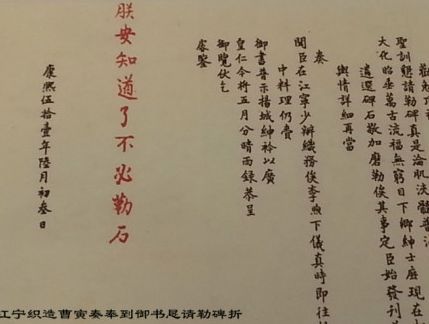 聖訓懇請勒碑真是淪肌浹髓
大化昭垂萬古流福無窮目下鄉紳士庶現在
遴選碑石敬加磨勒俟其事定臣始發刊
輿情詳細再當
奏
聞臣在江寧少辦織務俟李煦下儀真時即往
中料理仍賫
御書普示揚城紳衿以廣
皇仁今將五月分晴雨錄恭呈
御覽伏乞
睿鑒
朕安知道了不必勒石
康熙伍拾壹年陸月初叁日
江宁织造曹寅奏奉到御书恳请勒碑折